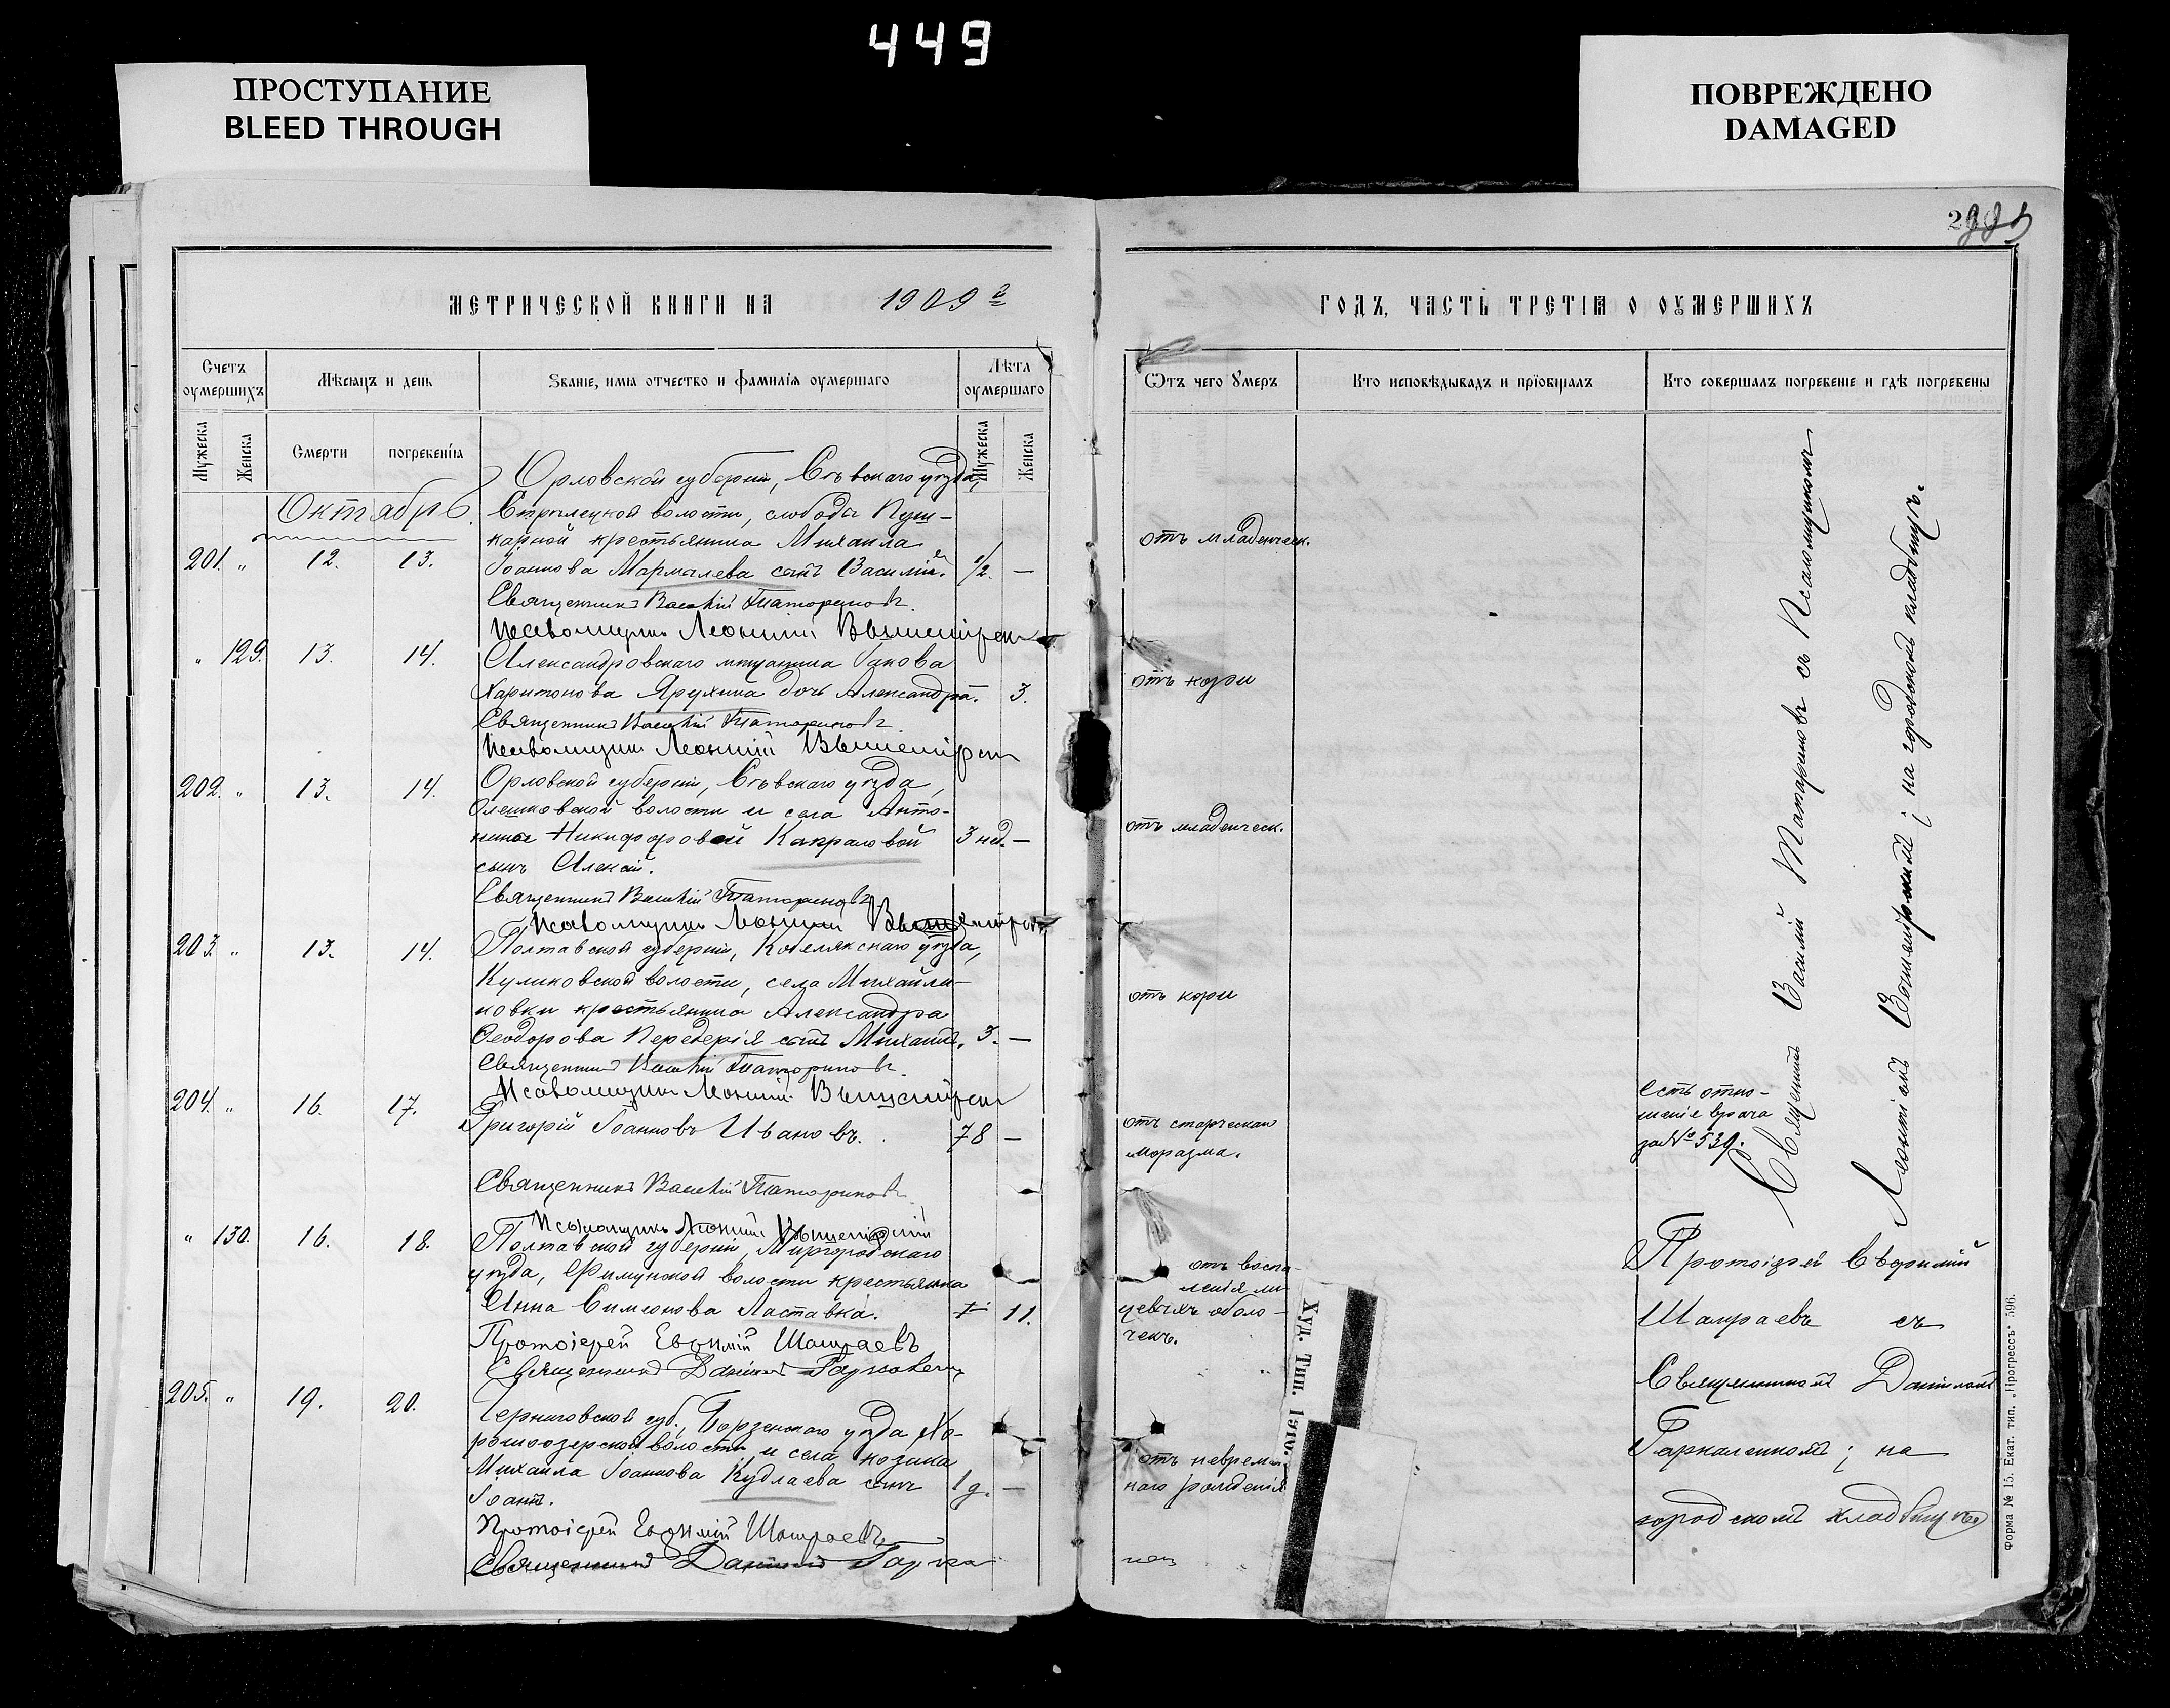 449
ПРОСТУПАНИЕ
BLEED THROUGH
ПОВРЕЖДЕНО
DAMAGED
МЕТРИЧЕСКОЙ КНИГИ НА 1909 г
Счетъ оумершихъ
Мѣсяцъ и день
Званіе, имя отчество и фамилія оумершаго
Лѣта оумершаго
Мужеска
Женска
Смерти
погребенія
Мужеска
Женска
Октябрь.
Орловской губерніи, Сѣвскаго уѣзда,
Стрѣлецкой волости, слободы Пуш-
карной крестьянина Михаила
201. " 12. 13. Іоаннова Мармалева сынъ Василій. 1/2. —
Священникъ Василій Татариновъ.
Псаломщикъ Леонтій
" 129. 13. 14. Александровскаго мѣщанина Іакова
Харитонова Ярухина дочь Александра. 3.
Священникъ Василій Татариновъ.
Псаломщикъ Леонтій
202. " 13. 14. Орловской губерніи, Сѣвскаго уѣзда,
волости и села Анто-
нины Никифоровой Капраловой 3 нед. —
сынъ Алексій.
Священникъ Василій Татариновъ.
Псаломщикъ Леонтій
203. " 13. 14. Полтавской губерніи, Кобелякскаго уѣзда,
Куликовской волости, села Михайли-
ковки крестьянина Александра
Ѳеодорова Передерія сынъ Михаилъ. 3. —
Священникъ Василій Татариновъ.
Псаломщикъ Леонтій
204. " 16. 17. Григорій Іоанновъ Ивановъ. 78 —
Священникъ Василій Татариновъ.
Псаломщикъ Леонтій
" 130. 16. 18. Полтавской губерніи, Миргородскаго
уѣзда, волости крестьянка
Анна Симеонова Ластавка. 11.
Протоіерей Евѳимій Шашраевъ
Священникъ Даніилъ
205. " 19. 20. Черниговской губ., Борзенскаго уѣзда Хо-
рошоозерской волости и села козака
Михаила Іоаннова Кудлаева сынъ 1 д. —
Іоаннъ.
Протоіерей Евѳимій Шашраевъ
Священникъ Даніилъ
ГОДЪ, ЧАСТЬ ТРЕТІЯ О ОУМЕРШИХЪ
Ѿтъ чего Умеръ
Кто исповѣдывалъ и пріобщалъ
Кто совершалъ погребеніе и гдѣ погребены
отъ младенческ.
отъ кори
отъ младенческ.
отъ кори
отъ старческаго
маразма.
отъ воспа-
ленія
оболо-
чекъ.
отъ неврем
наго рожденія
Священникъ Василій Татариновъ съ Псаломщикомъ
Леонтіемъ на городскомъ кладбищѣ.
Есть отно-
шеніе врача
за № 539.
Протоіерей Евѳимій
Шашраевъ съ
Священникомъ Даніиломъ
на
городскомъ кладбищѣ
Худ. Тип. 1910.
Форма № 15. Екат. тип. „Прогрессъ" 596.